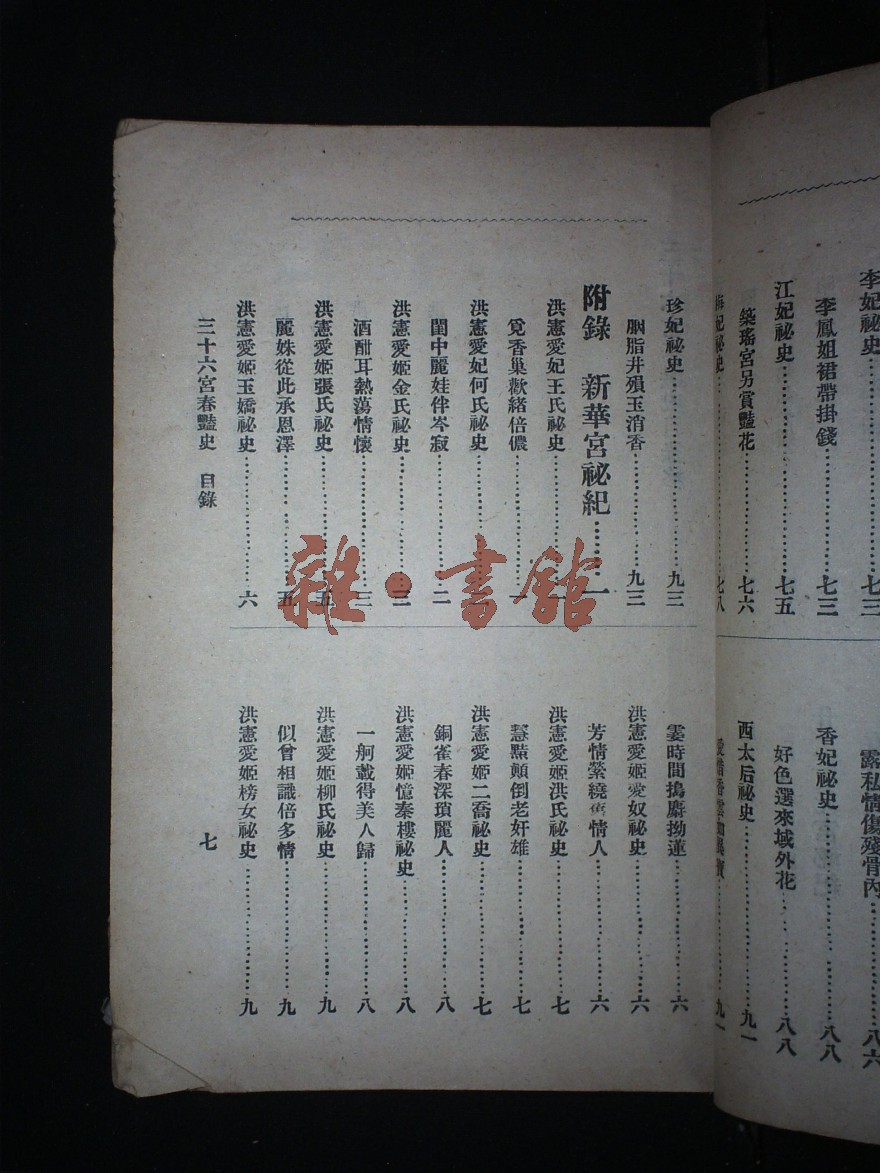 李妃祕史……七三
李鳳姐裙帶掛錢……七三
江妃祕史……七五
築瑤宮另賞豔花……七六
梅妃祕史……七八
露私情傷殘骨肉……八六
香妃祕史……八八
好色選來域外花……八八
西太后祕史……九一
珍妃祕史……九三
胭脂井殞玉消香……九三
附錄 新華宮祕紀……一
洪憲愛妃王氏祕史……一
覓香巢歡緒倍儂……一
洪憲愛妃何氏祕史……二
閨中麗娃伴岑寂……二
洪憲愛姬金氏祕史……三
酒酣耳熱蕩情懷……三
洪憲愛姬張氏祕史……五
麗姝從此承恩澤……五
洪憲愛姬玉嬌祕史……六
霎時間搗麝拗蓮……六
洪憲愛姬愛奴祕史……六
芳情縈繞舊情人……六
洪憲愛姬洪氏祕史……七
慧黠顛倒老奸雄……七
洪憲愛姬二喬祕史……七
銅雀春深瑣麗人……八
洪憲愛姬憶秦樓祕史……八
一舸載得美人歸……八
洪憲愛姬柳氏祕史……九
似曾相識倍多情……九
洪憲愛姬榜女祕史……九
三十六宮春豔史 目錄
七
雜·書館